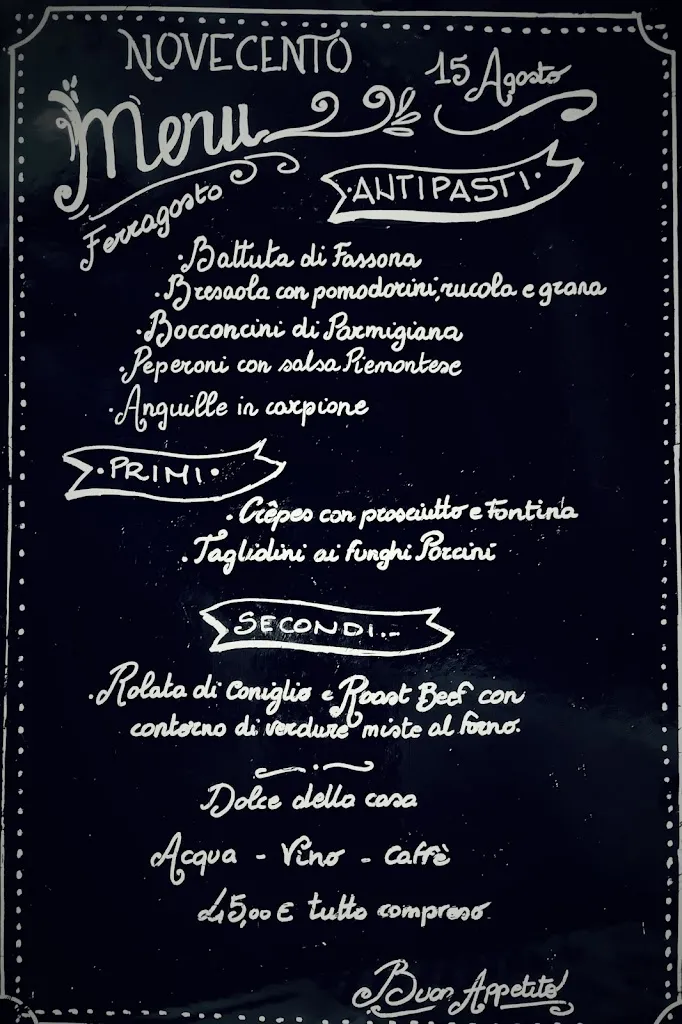 NOVECENTO
15 Agosto
Menu
Ferragosto
·ANTIPASTI·
·Battuta di Fassona
·Bresaola con pomodorini, rucola e grana
·Bocconcini di Parmigiana
·Peperoni con salsa Piemontese
·Anguille in carpione
·PRIMI·
·Crêpes con prosciutto e Fontina
·Tagliolini ai funghi Porcini
SECONDI...
·Rolata di Coniglio e Roast Beef con
contorno di verdure miste al forno.
Dolce della casa
Acqua - Vino - Caffè
45,00 € tutto compreso
Buon Appetito